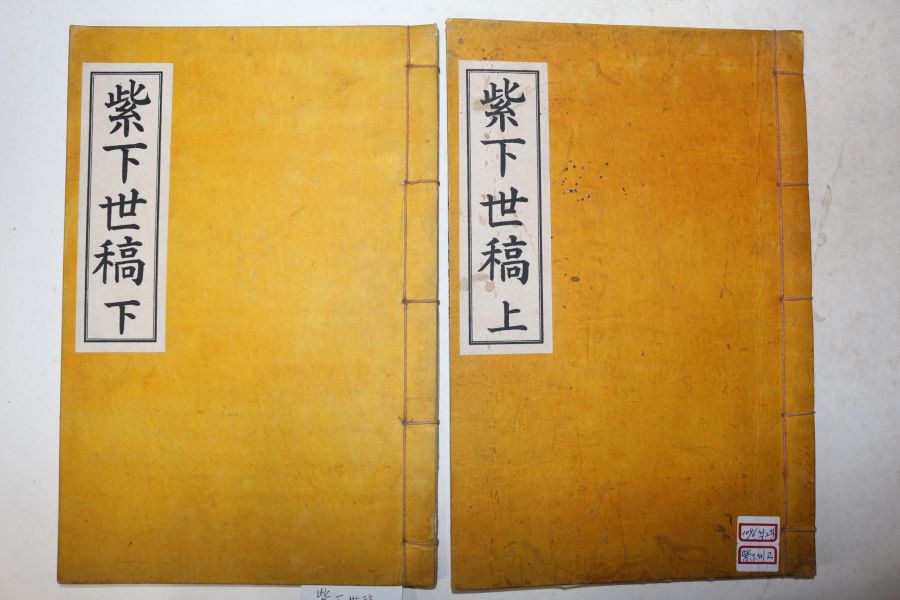 紫下世稿 上
紫下世稿 下
紫下世稿